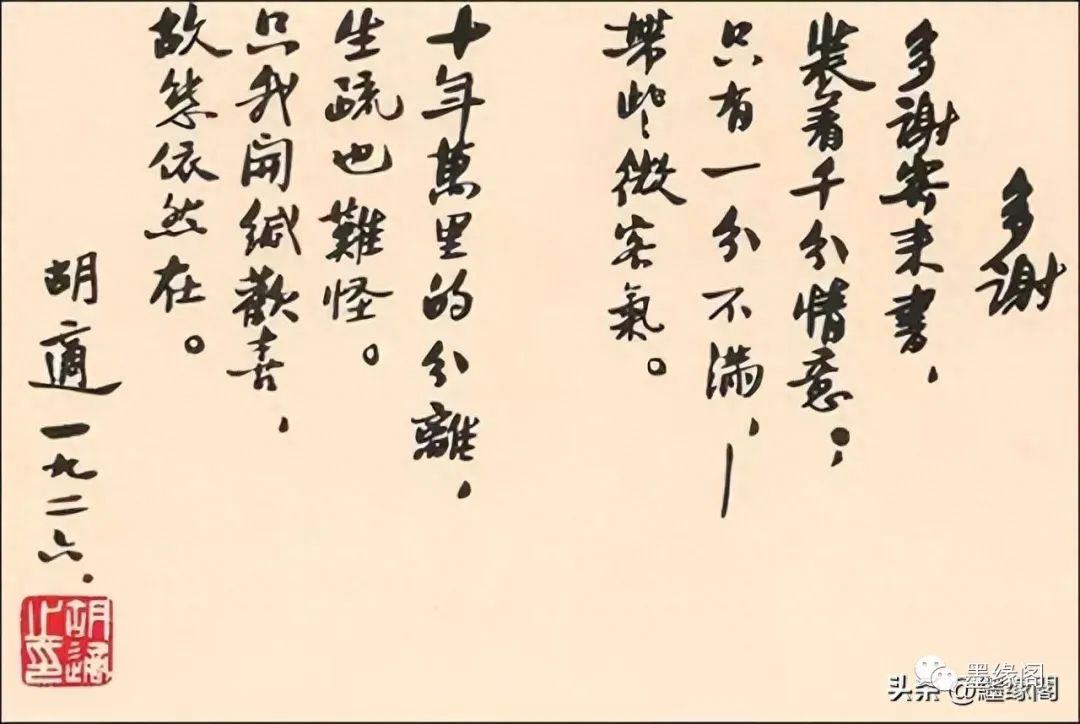 多謝
多謝寄来書，
裝着千分情意；
只有一分不滿，—
帶些微客氣。
十年萬里的分離，
生疏也難怪。
只我開緘歡喜，
故態依然在。
胡適 一九二六．
胡適之印
墨缘阁
头条 @墨缘阁